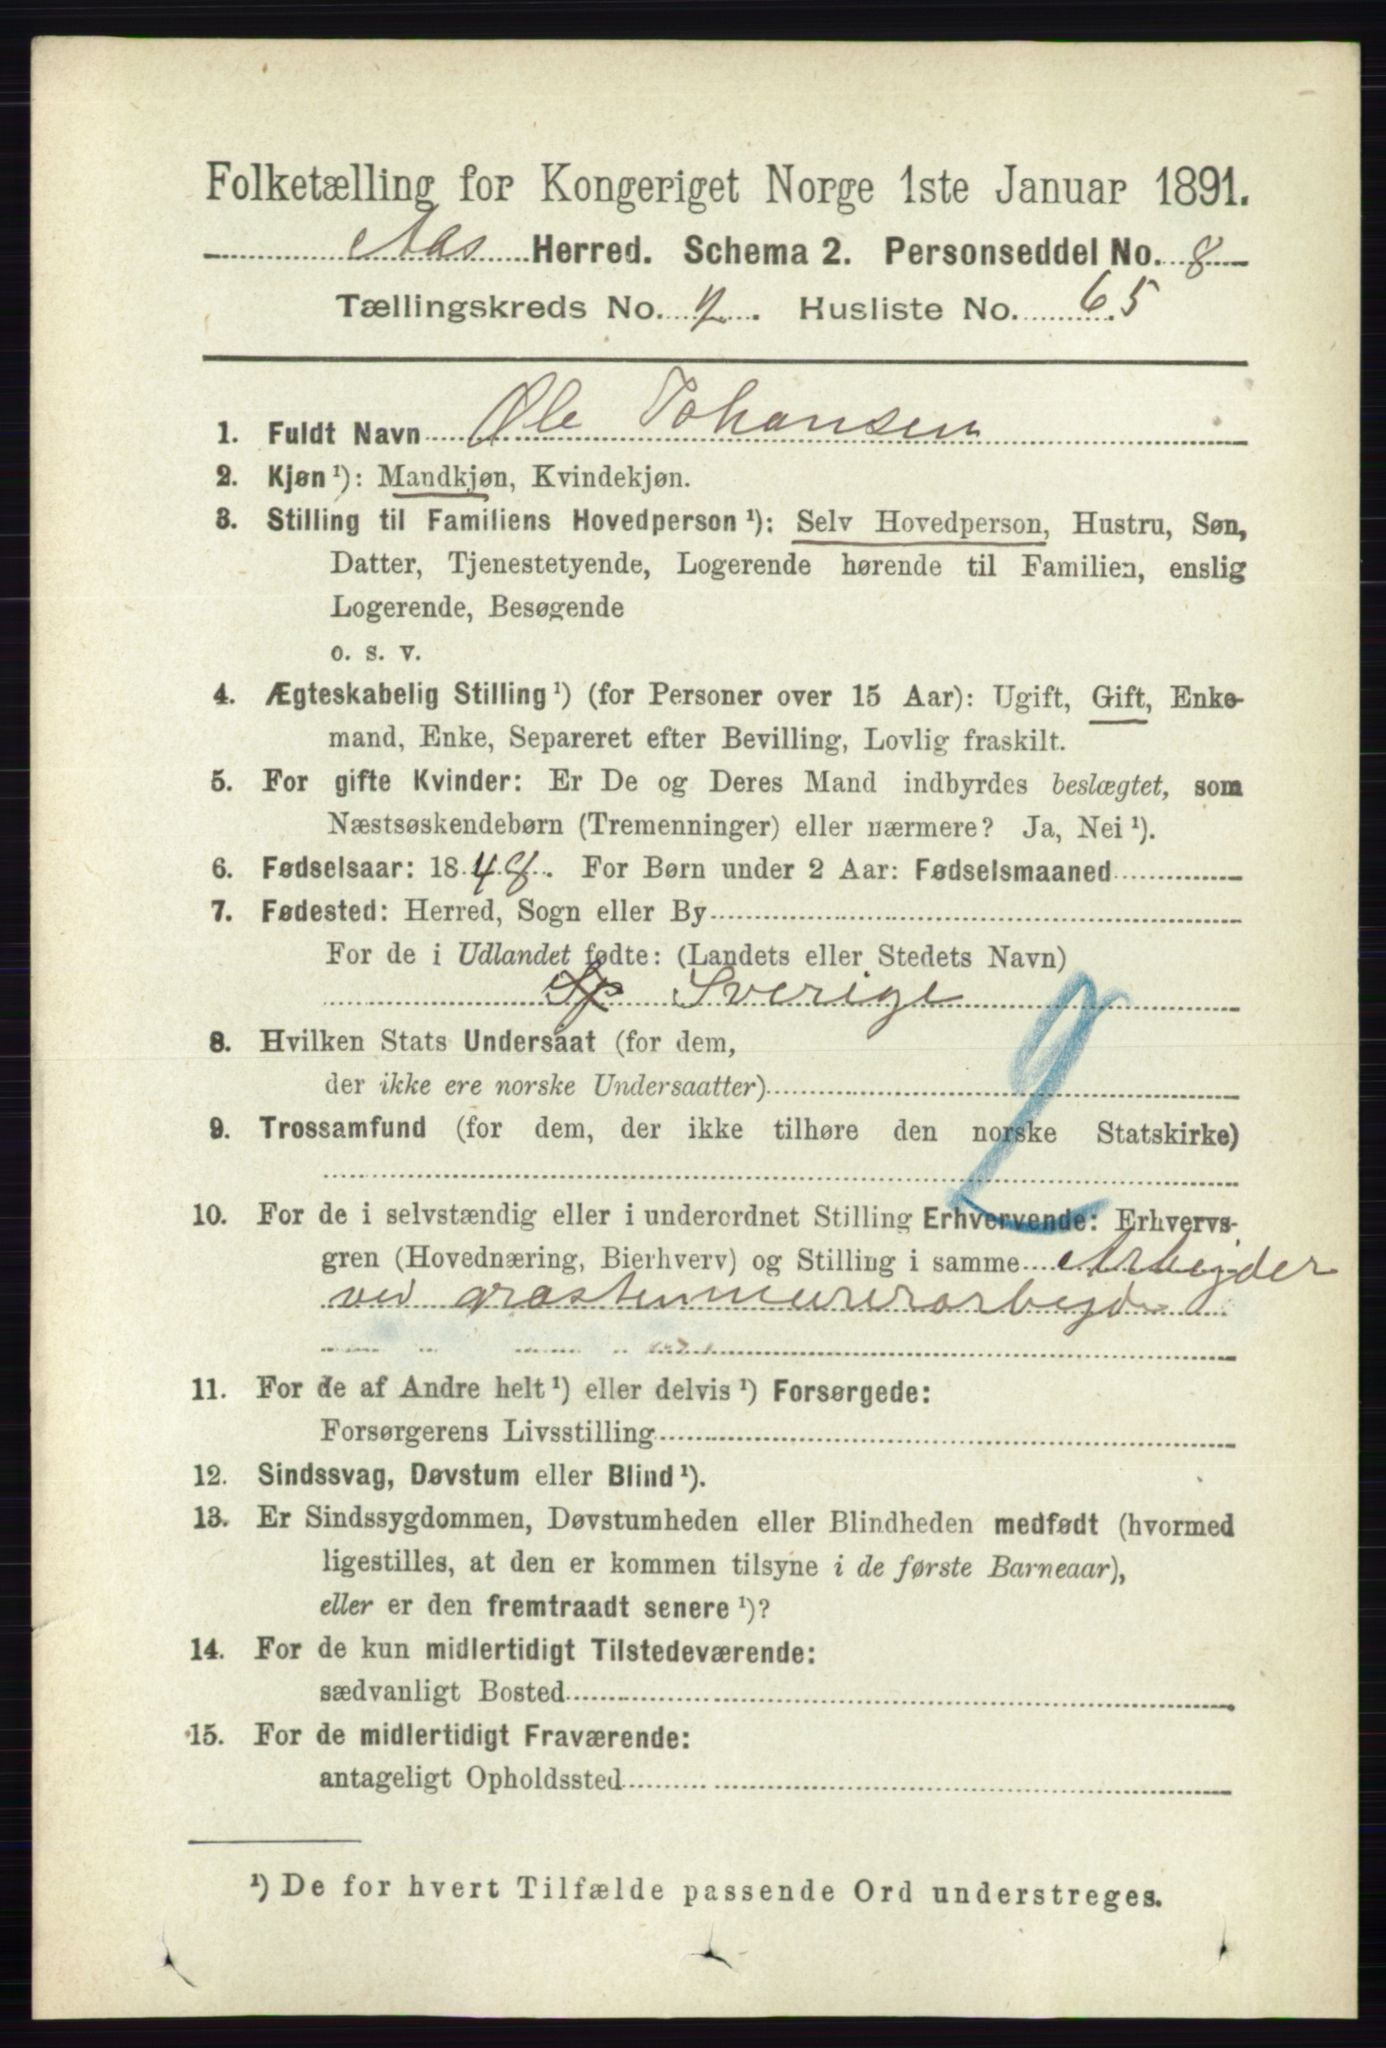 Folketælling for Kongeriget Norge 1ste Januar 1891.
Aas Herred. Schema 2. Personseddel No. 8
Tællingskreds No. 2. Husliste No. 65
1. Fuldt Navn Ole Johansen
2. Kjøn ¹): Mandkjøn, Kvindekjøn.
3. Stilling til Familiens Hovedperson ¹): Selv Hovedperson, Hustru, Søn,
Datter, Tjenestetyende, Logerende hørende til Familien, enslig
Logerende, Besøgende
o. s. v.
4. Ægteskabelig Stilling ¹) (for Personer over 15 Aar): Ugift, Gift, Enke-
mand, Enke, Separeret efter Bevilling, Lovlig fraskilt.
5. For gifte Kvinder: Er De og Deres Mand indbyrdes beslægtet, som
Næstsøskendebørn (Tremenninger) eller nærmere? Ja, Nei ¹).
6. Fødselsaar: 1848. For Børn under 2 Aar: Fødselsmaaned
7. Fødested: Herred, Sogn eller By
For de i Udlandet fødte: (Landets eller Stedets Navn)
Sverige
8. Hvilken Stats Undersaat (for dem,
der ikke ere norske Undersaatter)
9. Trossamfund (for dem, der ikke tilhøre den norske Statskirke)
2
10. For de i selvstændig eller i underordnet Stilling Erhvervende: Erhvervs-
gren (Hovednæring, Bierhverv) og Stilling i samme Arbejder
ved graastenmurerarbejde
11. For de af Andre helt ¹) eller delvis ¹) Forsørgede:
Forsørgerens Livsstilling
12. Sindssvag, Døvstum eller Blind ¹).
13. Er Sindssygdommen, Døvstumheden eller Blindheden medfødt (hvormed
ligestilles, at den er kommen tilsyne i de første Barneaar),
eller er den fremtraadt senere ¹)?
14. For de kun midlertidigt Tilstedeværende:
sædvanligt Bosted
15. For de midlertidigt Fraværende:
antageligt Opholdssted
¹) De for hvert Tilfælde passende Ord understreges.